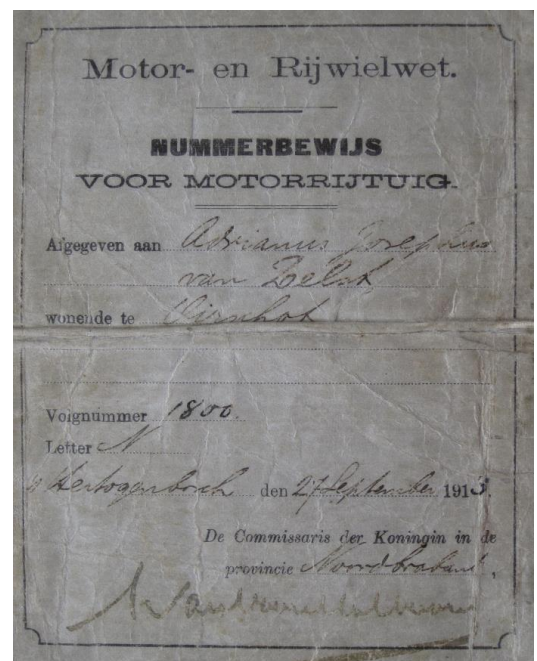 Motor- en Rijwielwet.
NUMMERBEWIJS
VOOR MOTORRIJTUIG.
Afgegeven aan Adrianus Josephus
van Zelst
wonende te
Volgnummer 1800.
Letter N
's Hertogenbosch den 27 September 1913.
De Commissaris der Koningin in de
provincie Noordbrabant,